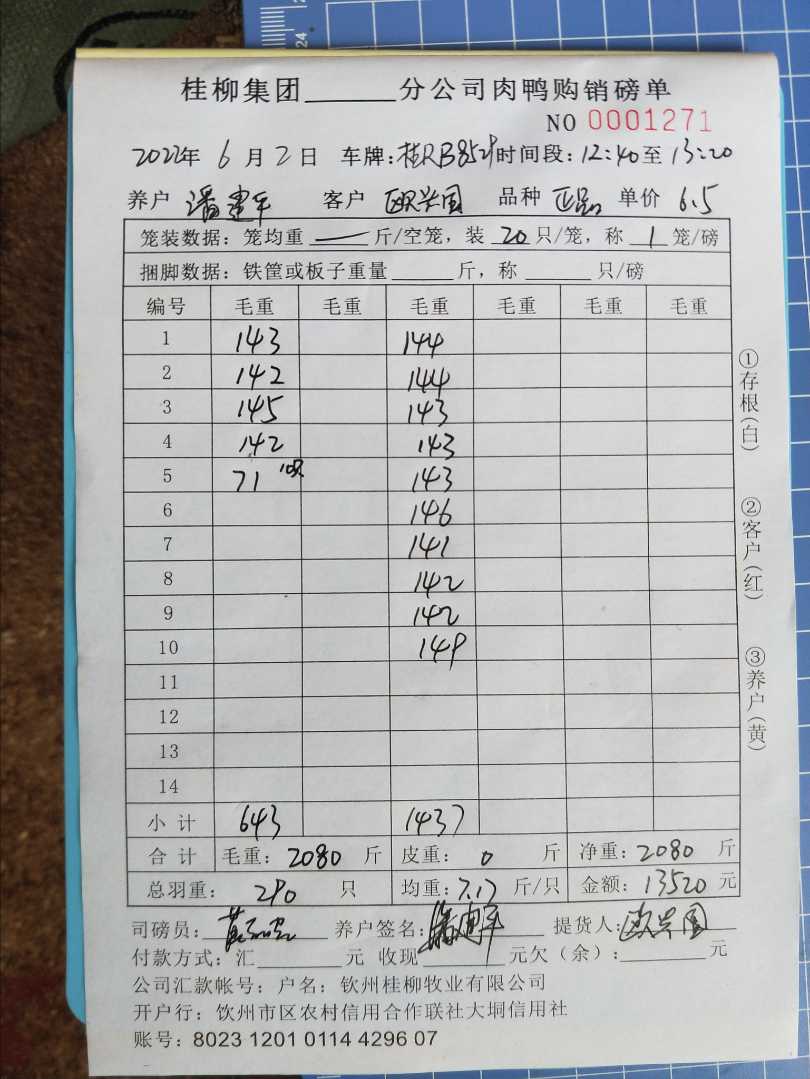 24
桂柳集团______分公司肉鸭购销磅单
NO 0001271
2022年 6月2日 车牌: 时间段:12:40至13:20
养户 潘建平 客户 欧兴国 品种 正品 单价 6.5
笼装数据:笼均重 — 斤/空笼,装 20 只/笼,称 1 笼/磅
捆脚数据:铁筐或板子重量______斤,称______只/磅
编号 毛重 毛重 毛重 毛重 毛重 毛重
1 143 144
2 142 144
3 145 143
4 142 143
5 71 10只 143
6 146
7 141
8 142
9 142
10 149
11
12
13
14
小计 643 1437
合计 毛重:2080 斤 皮重:0 斤 净重:2080 斤
总羽重:290 只 均重:7.17 斤/只 金额:13520 元
司磅员: 养户签名:潘建平 提货人:欧兴国
付款方式:汇______元 收现______元欠(余):______元
公司汇款帐号:户名:钦州桂柳牧业有限公司
开户行:钦州市区农村信用合作联社大垌信用社
账号:8023 1201 0114 4296 07
①存根(白)
②客户(红)
③养户(黄)